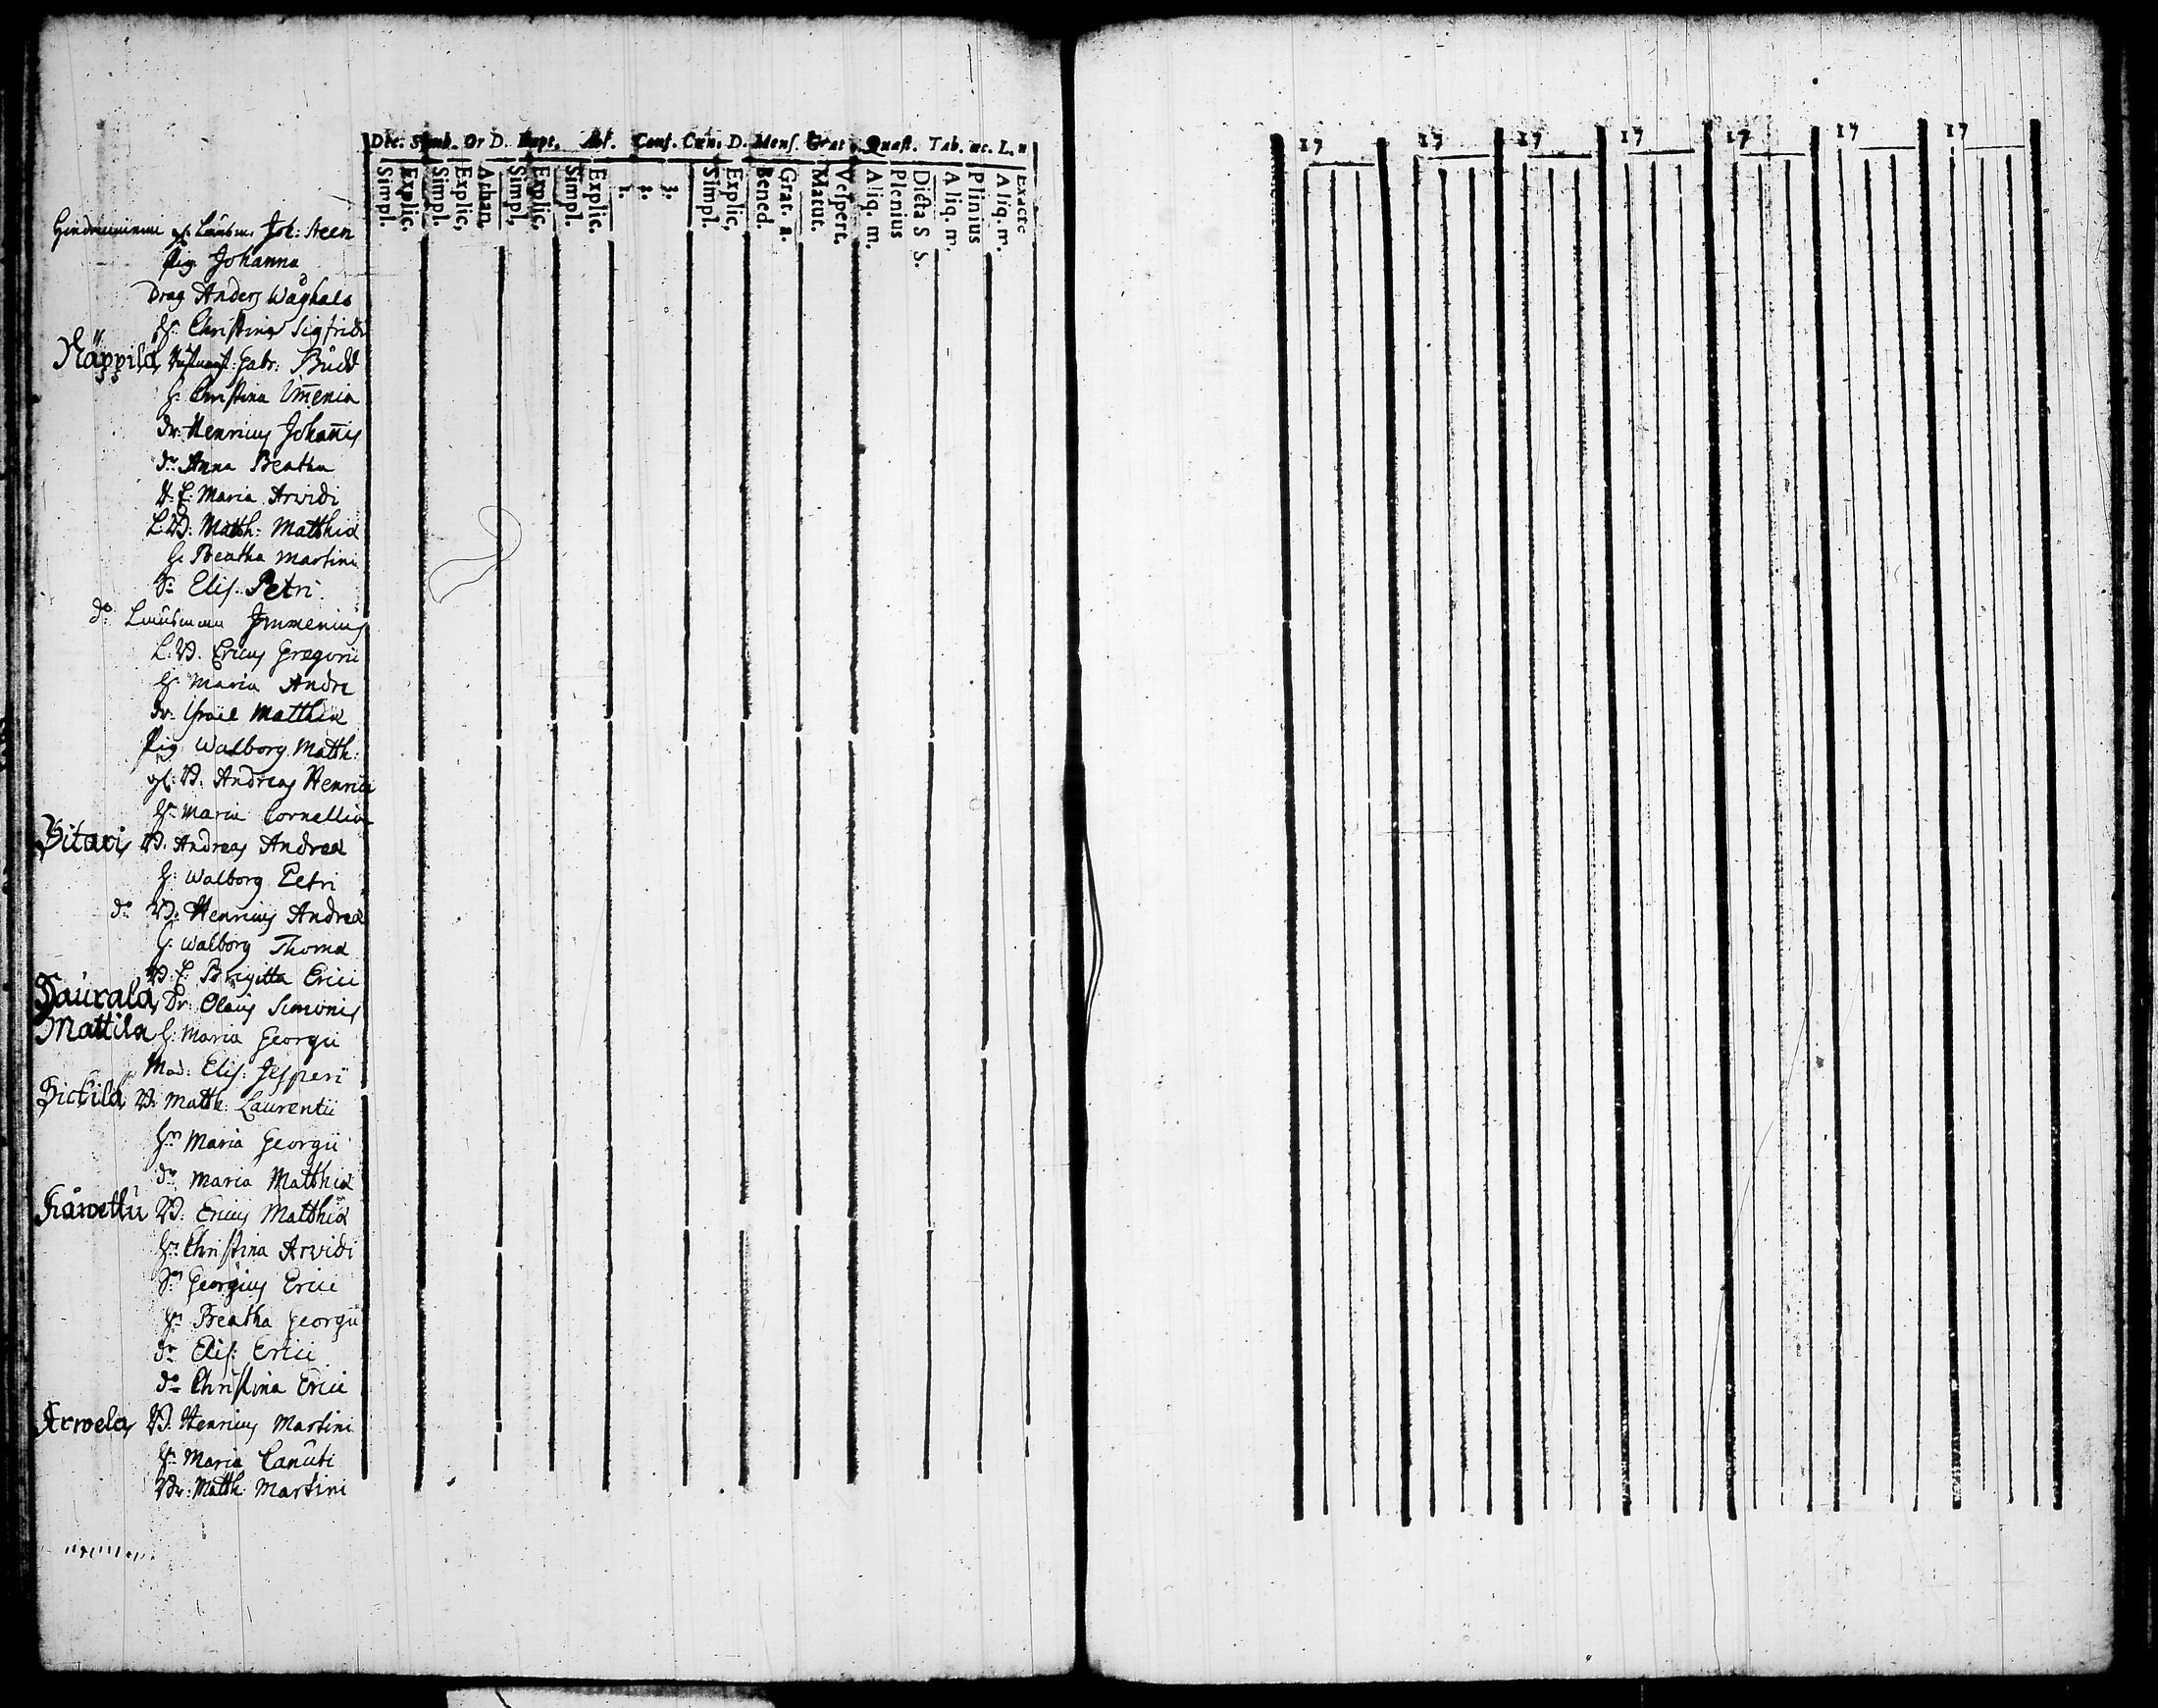 Dec. Simb. Or D. Bapt. Abs. Conf. Cœn. D. Mens. Grat. Quæst. Tab. œc. L. n
Simpl.
Explic.
Simpl.
Explic,
Athan.
Simpl,
Explic,
Simpl.
Explic.
1.
2.
3.
Simpl.
Explic,
Bened.
Grat. a.
Matut.
Vespert.
Aliq. m.
Plenius
Dicta S S.
Aliq. m.
Plinius
Aliq. m.
Exacte
17 17 17 17 17 17 17
Joh: Steen
Pig. Johanna
Drag Anders Wåghals
H: Christina Sigfridi
Näppilä Gabr: Budd
H: Christina Im̄enia
Dr: Henricus Johan̄is
dr Anna Beatha
E: Maria Arvidi
L:B: Matth: Matthiæ
H: Beatha Martini
Dr Elis: Petri
do Länsman Jmmenius
L:B. Ericus Gregorii
H: Maria Andre
dr: Israel Matthiæ
Pig Walborg Matth:
gl: B. Andreas Henrici
H: Maria Cornellia
B. Andreas Andreæ
H: Walborg Petri
do B. Henricus Andreæ
H: Walborg Thomæ
B. E: Brigitta Erici
Daurala, Dr: Olaus Simonis
Mattila H: Maria Georgii
Mod: Elis: Jesperi
B: Matth: Laurentii
Hn Maria Georgii
dr Maria Matthiæ
B: Ericus Matthiæ
Hn Christina Arvidi
Sn Georgius Erici
Hn Beatha Georgii
dr Elis: Erici
dr Christina Erici
B: Henricus Martini
Hn Maria Canuti
Br: Matth: Martini